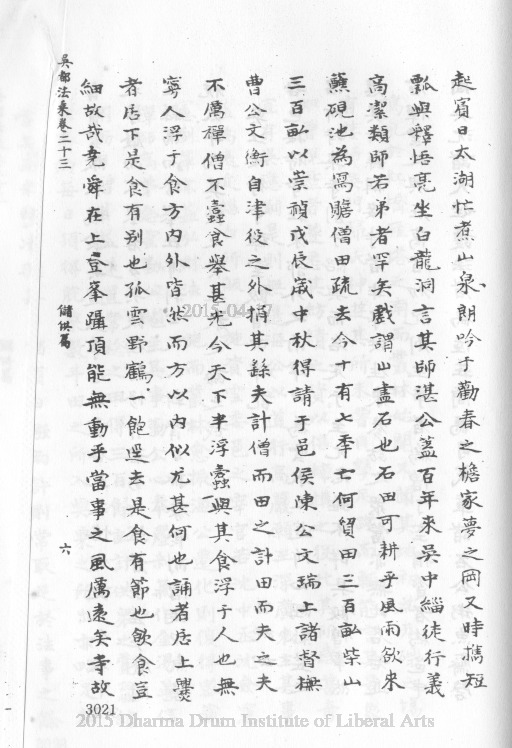 起賓日太湖忙煮山泉朗吟于勸春之檐家夢之岡又時攜短
瓢與釋悟亮坐白龍洞言其師湛公蓋百年來吳中緇徒行義
高潔類師若弟者罕矣戲謂山盡石也石田可耕乎風雨欲來
蘸硯池為寫贍僧田疏去今十有七年亡何貿田三百畝柴山
三百畝以崇禎戊辰歲中秋得請于邑侯陳公文瑞上諸督撫
曹公文衡自津役之外捐其繇夫計僧而田之計田而夫之夫
不厲禪僧不蠹食舉甚光今天下半浮蠹與其食浮于人也無
寧人浮于食方內外皆然而方以內似尤甚何也誦者居上爨
者居下是食有別也孤雲野鶴一飽還去是食有節也飲食豈
細故哉堯舜在上登峯躡頂能無動乎當事之風厲遠矣寺故
吳都法乘卷二十三 儲供篇 六
3021
2015-04-17
2015 Dharma Drum Institute of Liberal Arts